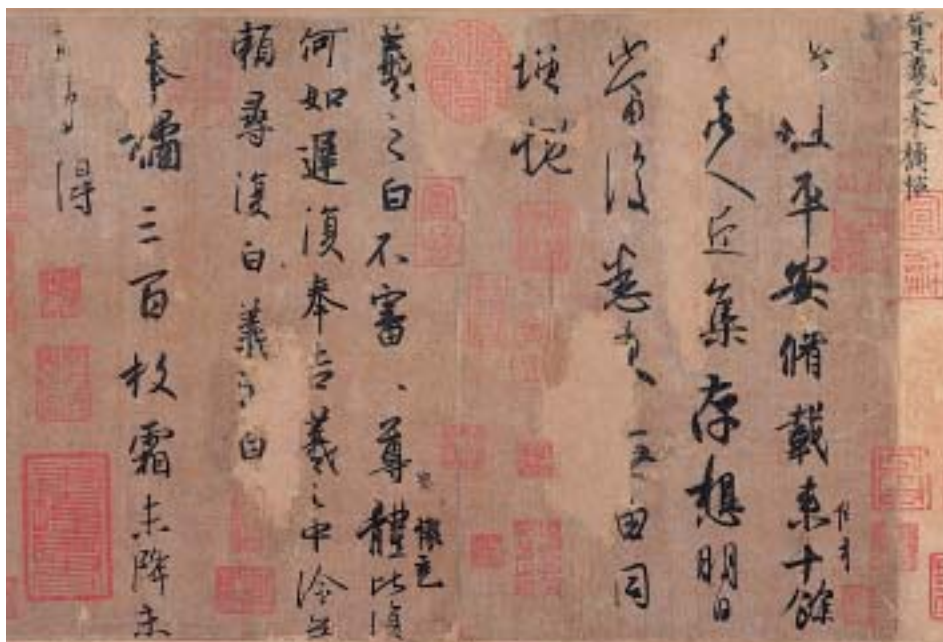 晉王羲之奉橘帖
此粗平安脩載來十餘
日諸人近集存想明日
當復悉來無由同
增慨
羲之白不審尊體比復
懷充
何如遲復奉告羲之中冷無
賴尋復白羲之白
奉橘三百枚霜未降未
可多得